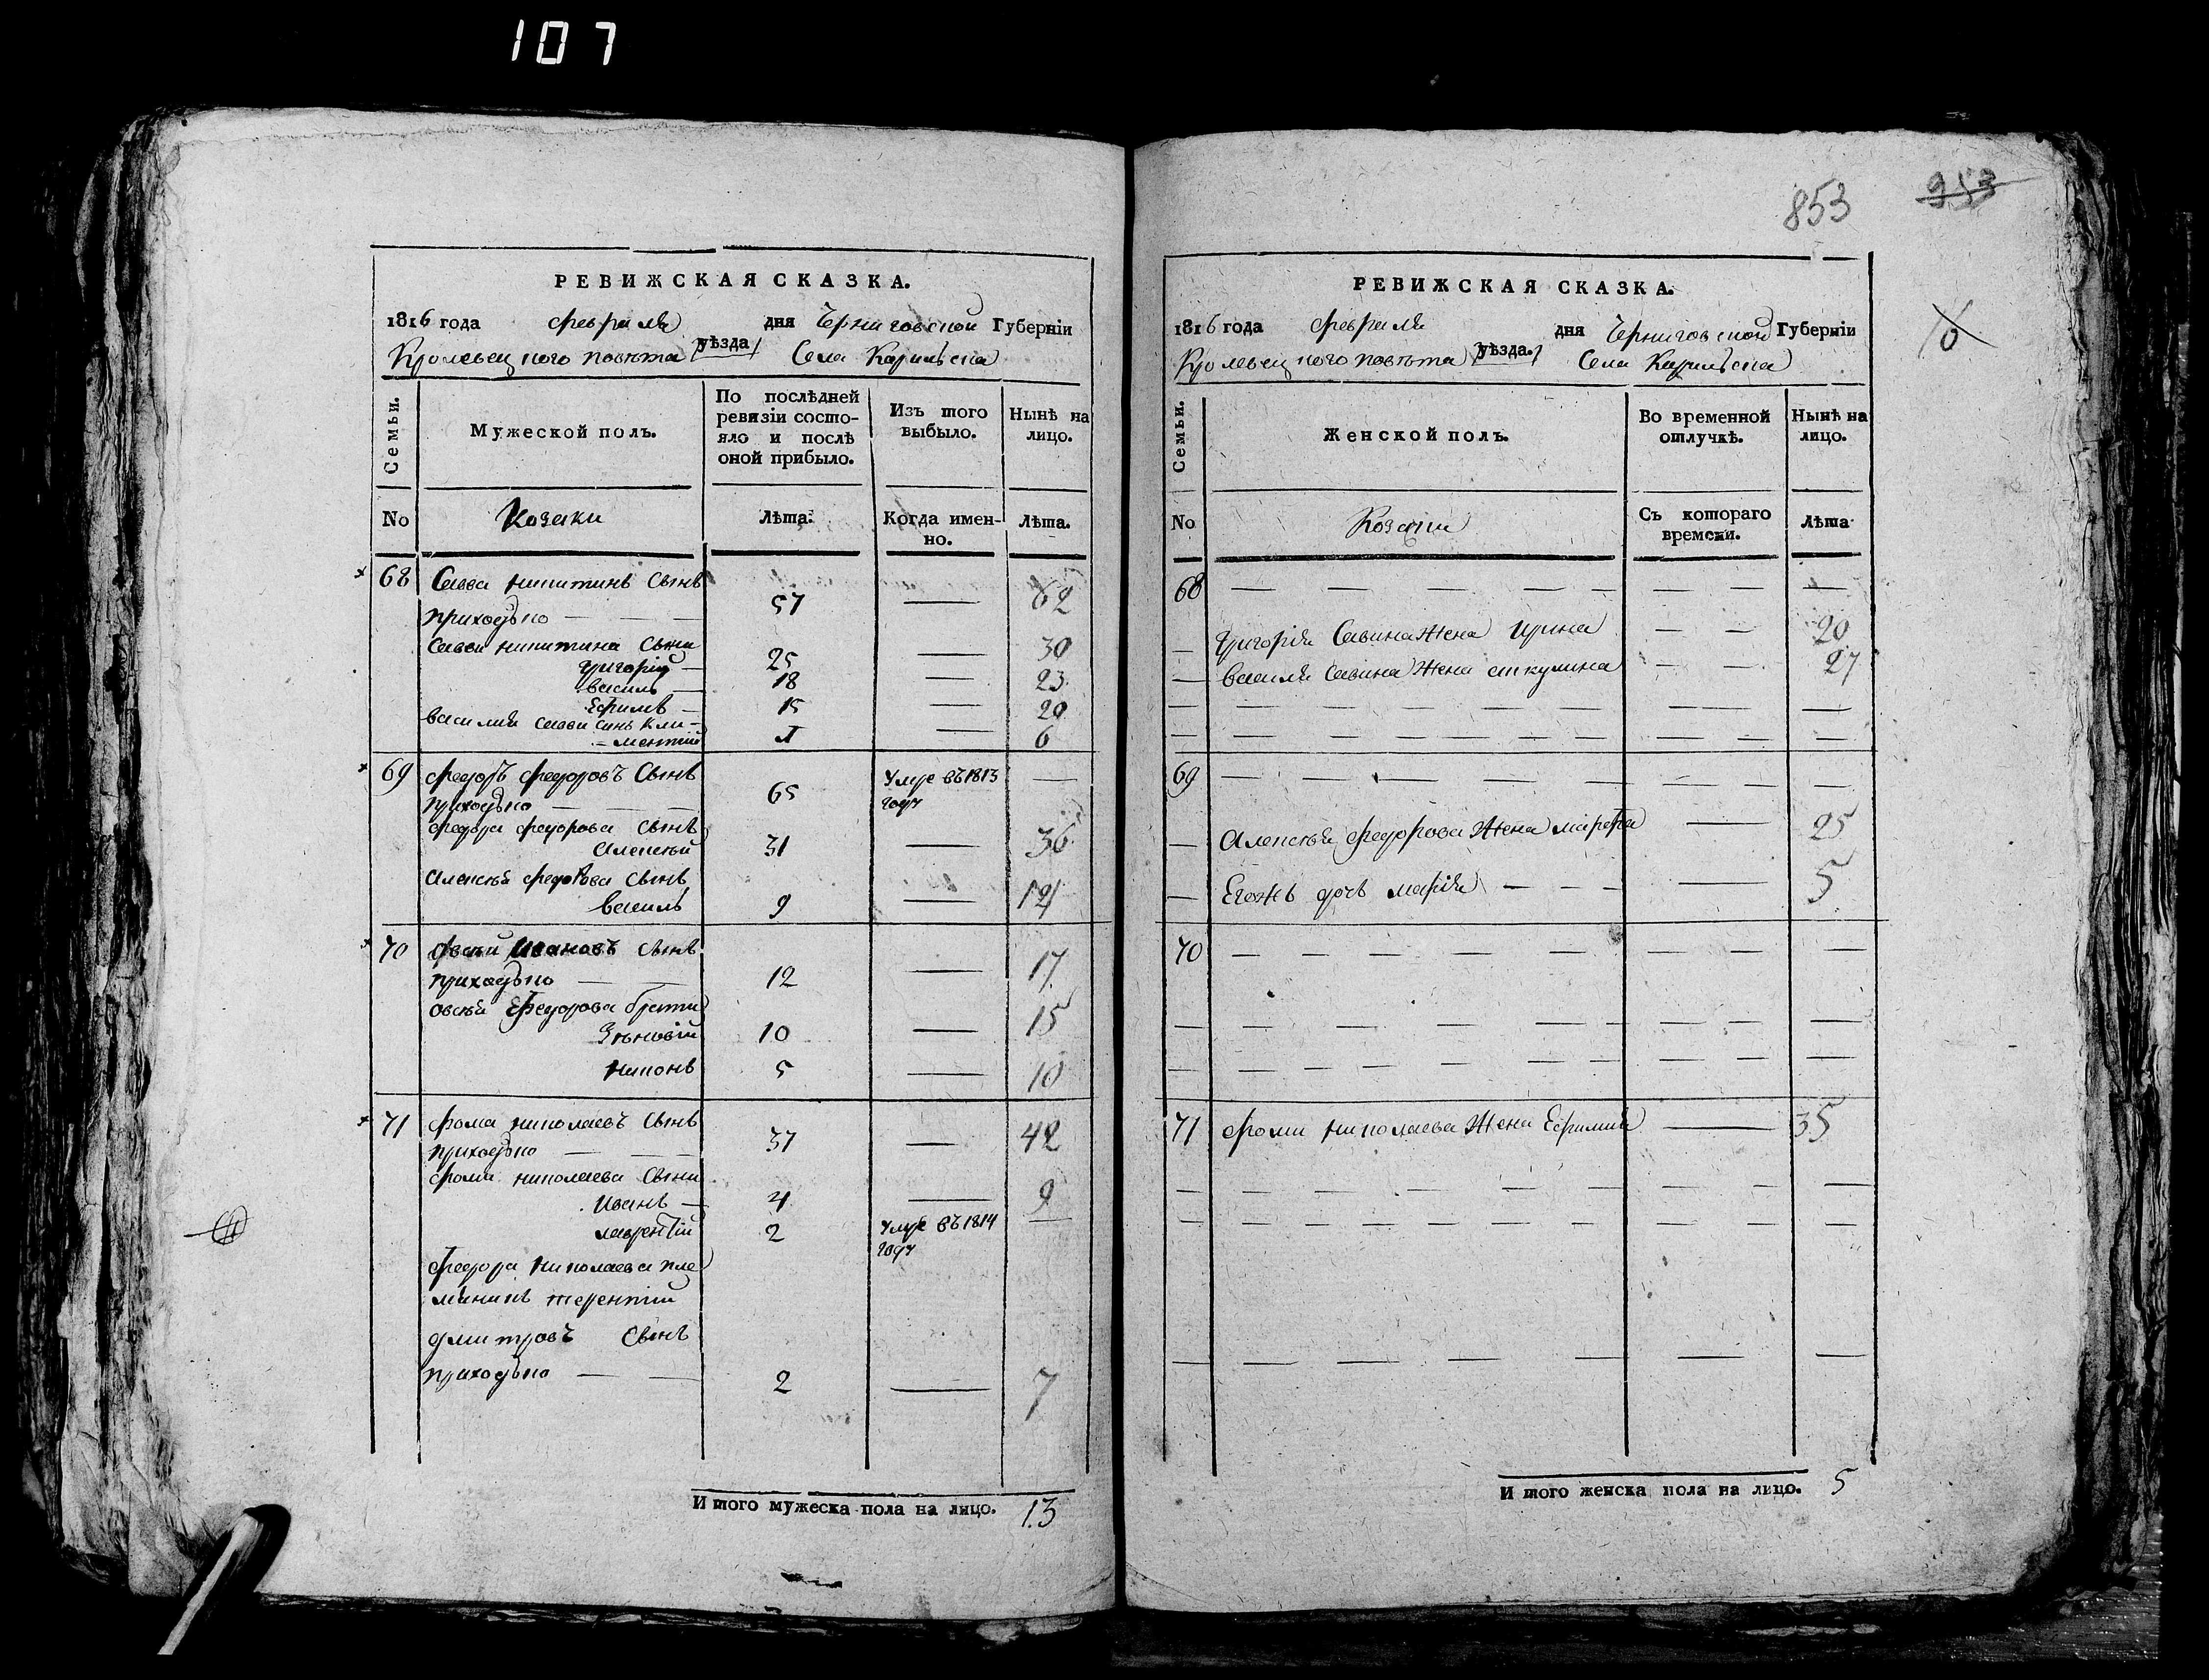 107
853 953
РЕВИЖСКАЯ СКАЗКА.
1816 года февраля дня Черниговской Губерніи
Кролевецкого повѣта уѣзда Села Карилска
Семьи.
Мужеской полъ.
По послѣдней ревизіи состояло и послѣ оной прибыло.
Изъ того выбыло.
Нынѣ на лицо.
No Козаки Лѣта. Когда имен-но. Лѣта.
68 Савва никитинъ Сынъ
приходько — — — 57 — 62
Савви никитина Сыни
Григорій — 25 — 30
василь — 18 — 23
Ефимъ — 15 — 20
василия савви синъ Кли-
-ментій 1 — 6
69 федоръ федоровъ Сынъ Умре въ 1813 —
приходько — — — 65 году
федора федорова Сынъ
Алексѣй 31 — 36
Алексѣя федорова Сынъ
василь 9 — 14
70 Овсѣй Ивановъ Сынъ
приходько — — 12 — 17
Овсѣя Федорова брати
Зѣновій 10 — 15
никонъ 5 — 10
71 фома николаевъ Сынъ
приходько — — — 37 — 42
фоми николаева Сыни
Иванъ — 4 — 9
лаврентій 2 Умре въ 1814 —
году
федора николаева пле
мяникъ терентій
дмитровъ Сынъ
приходько — — 2 — 7
Итого мужеска пола на лицо. 13
РЕВИЖСКАЯ СКАЗКА.
1816 года февраля дня Черниговской Губерніи
Кролевецкого повѣта уѣзда. Села Карилска
Семьи.
Женской полъ.
Во временной отлучкѣ.
Нынѣ на лицо.
No Козачки Съ котораго времени. Лѣта
68 — — — — — — — —
— Григорія Савина Жена Ирина — — 20
— василя Савина Жена акулина — — 27
69 — — — — — — — —
— Алексѣя федорова Жена марфа — 25
— Егожъ дочь марія — — — — 5
70 — — — — — — — —
71 фоми николаева Жена Ефимия — 35
Итого женска пола на лицо. 5